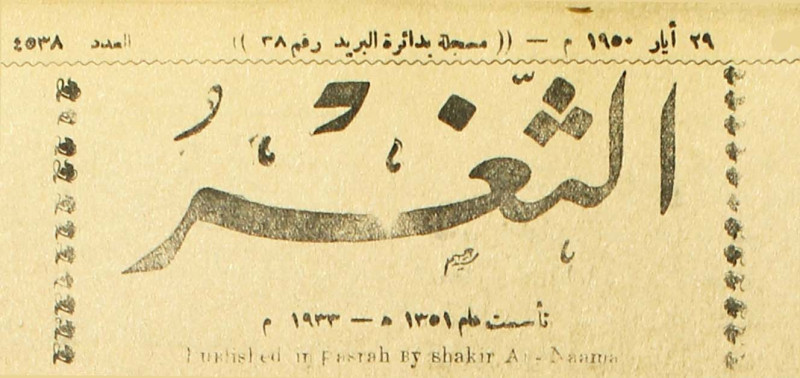 ٢٩ أيار ١٩٥٠ م — (( مسجلة بدائرة البريد رقم ٢٨ )) العدد ٤٥٣٨
الثَّغر
تأسست عام ١٣٥١ ه — ١٩٣٣ م
Published in Basrah By Shakir An-Naama